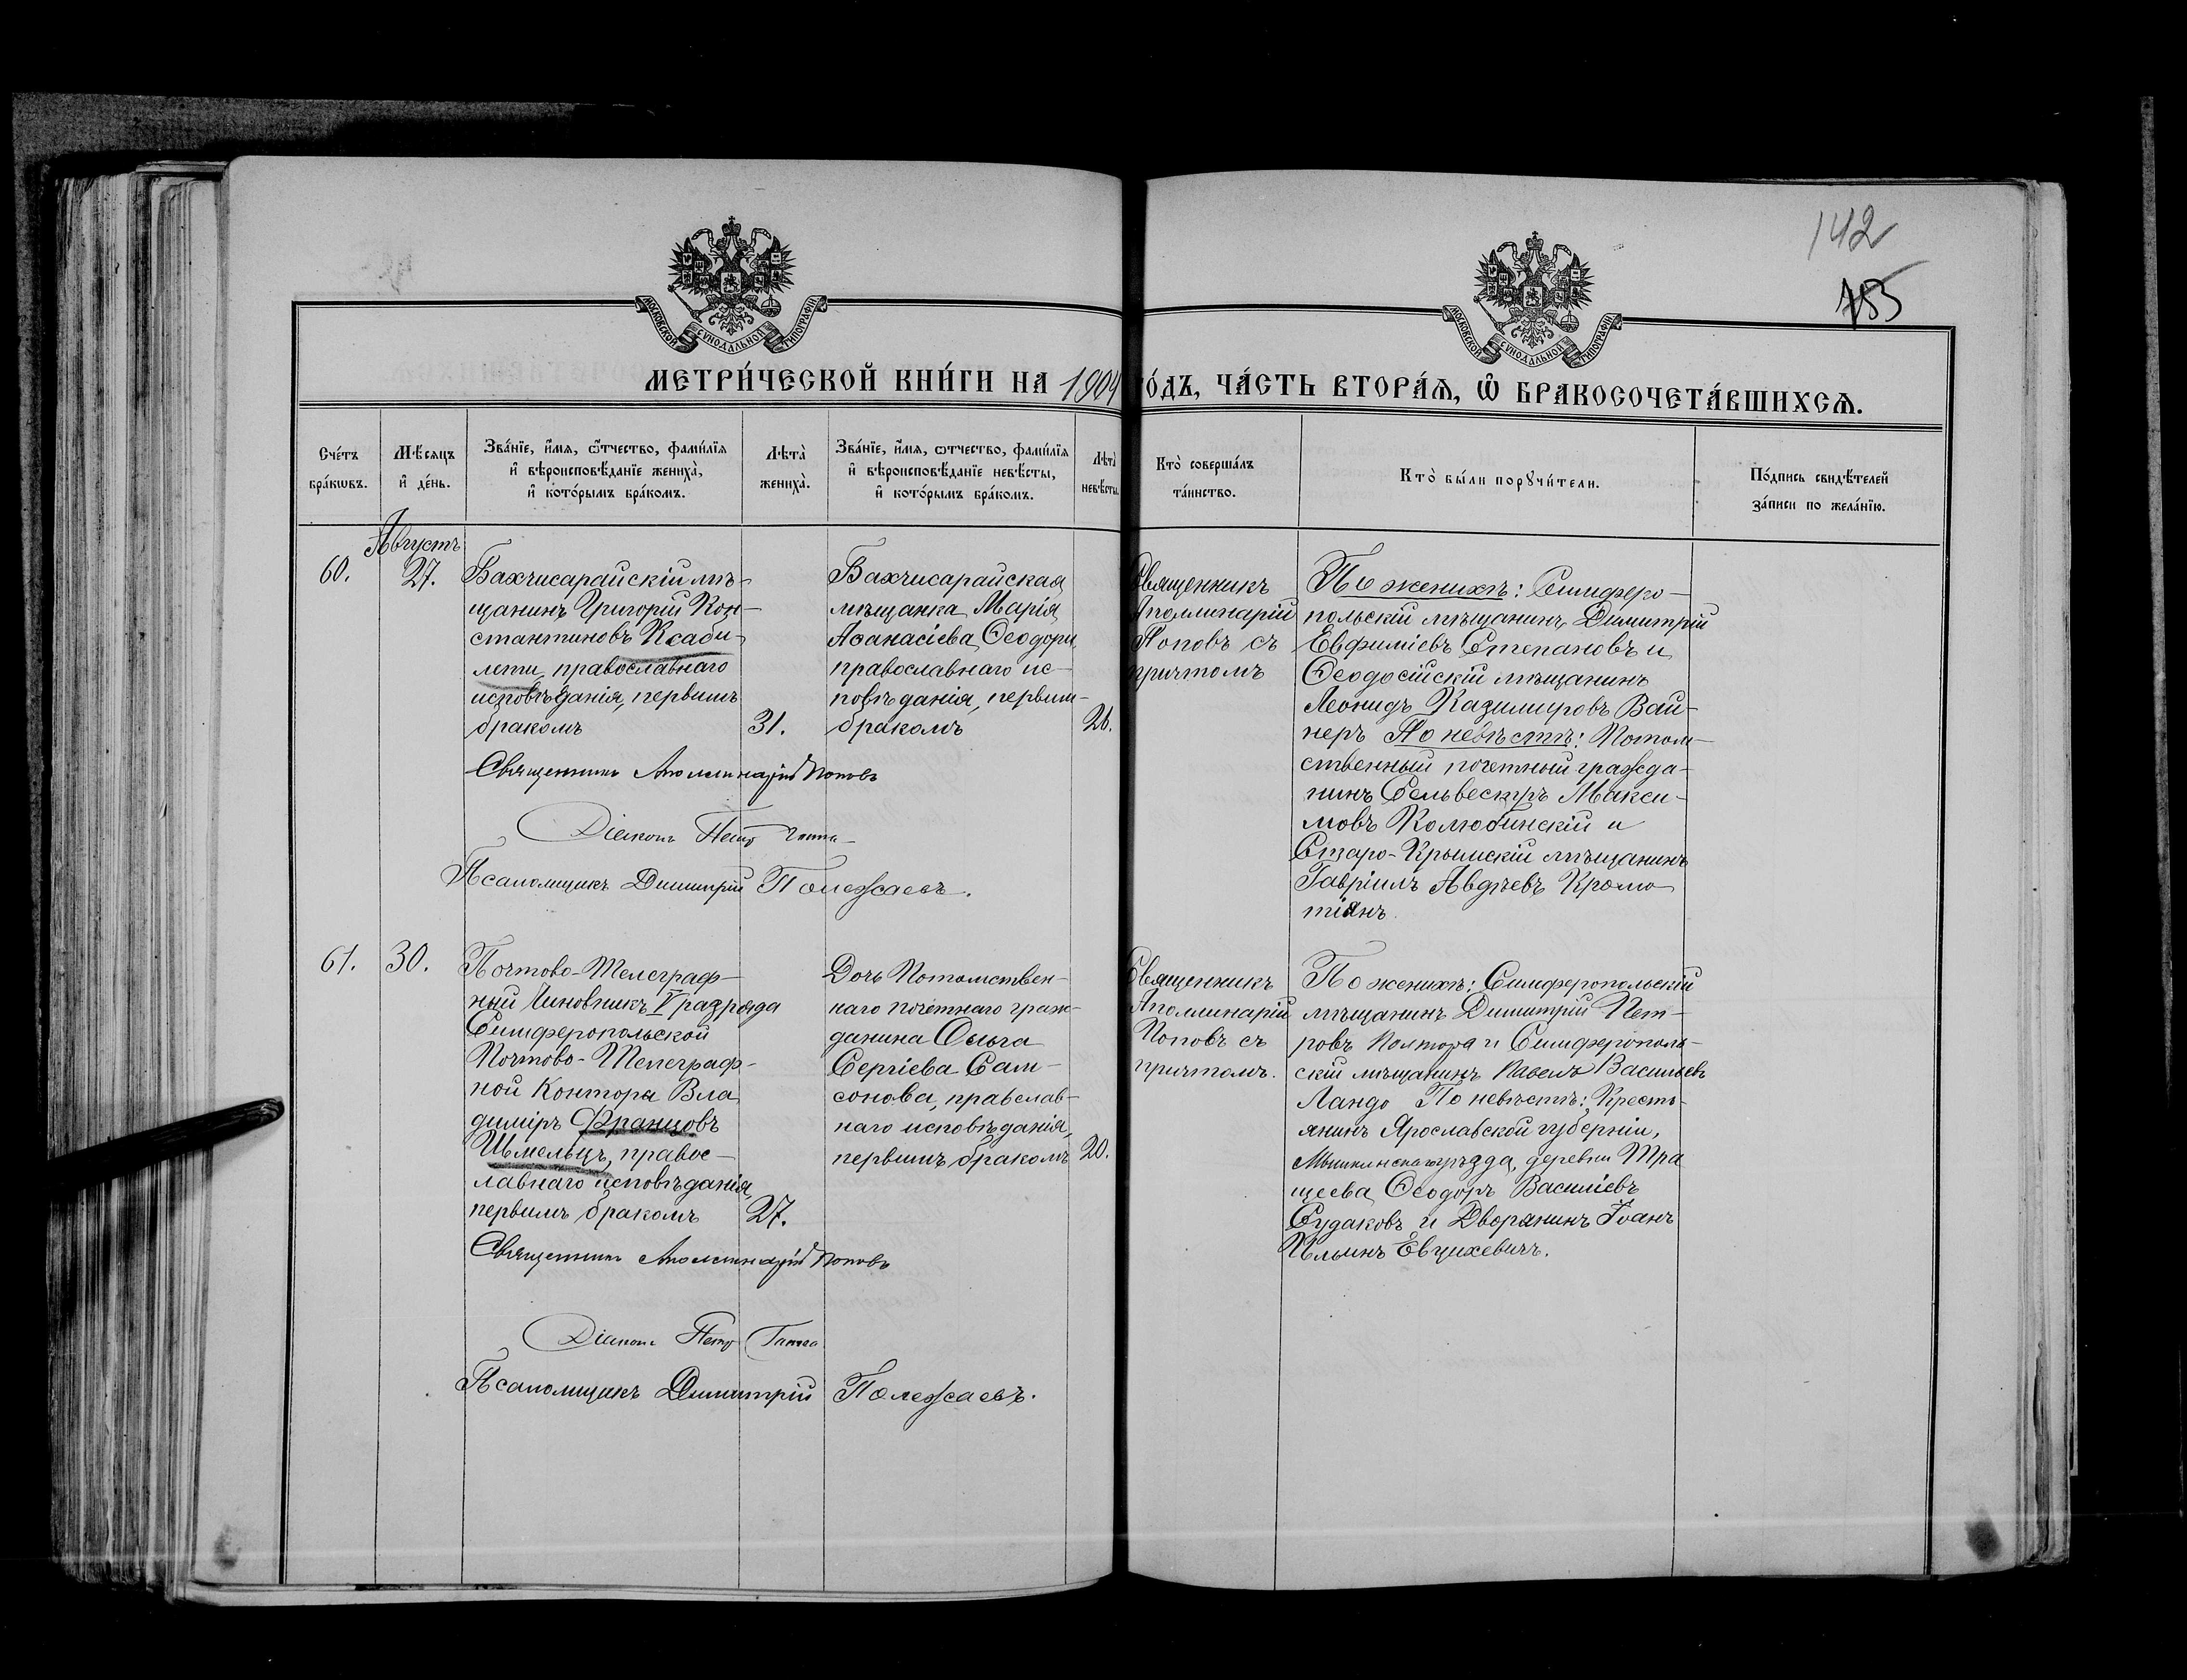 142
155
МОСКОВСКОЙ СѴНОДАЛЬНОЙ ТИПОГРАФІИ
МОСКОВСКОЙ СѴНОДАЛЬНОЙ ТИПОГРАФІИ
МЕТРИ́ЧЕСКОЙ КНИ́ГИ НА 1904
ГО́ДЪ, ЧА́СТЬ ВТОРА́Ѧ, Ѿ БРАКОСОЧЕТА́ВШИХСѦ.
Сче́тъ
бра́кѡвъ.
Мѣ́сяцъ
и҆ де́нь.
Зва́нїе, и҆́мя, ѻ҆́тчество, фами́лїя
и҆ вѣроисповѣ́данїе жениха̀,
и҆ кото́рымъ бра́комъ.
Лѣта̀
жениха̀.
Зва́нїе, и҆́мя, ѻтчество, фами́лїя
и҆ вѣроисповѣ́данїе невѣ́сты,
и҆ кото́рымъ бра́комъ.
Лѣта̀
невѣ́сты.
Кто̀ соверша́лъ
та́инство.
Кто̀ бы́ли порꙋчи́тели.
По́дпись свидѣ́телей
за́писи по жела́нїю.
Августъ
60.
27.
Бахчисарайскій мѣ-
щанинъ Григорій Кон-
стантиновъ Ксаби-
лети, православнаго
исповѣданія, первымъ
бракомъ
31.
Бахчисарайская
мѣщанка Марія
Аѳанасіева Ѳеодори,
православнаго ис-
повѣданія, первым-
бракомъ
26.
Священникъ
Аполлинарій
Поповъ съ
причтомъ
По женихѣ: Симферо-
польскій мѣщанинъ Димитрій
Евфиміевъ Степановъ и
Ѳеодосійскій мѣщанинъ
Леонидъ Казимировъ Вай-
неръ По невѣстѣ: Потом-
ственный почетный гражда-
нинъ Сельвестръ Макси-
мовъ Колюбинскій и
Старо-Крымскій мѣщанинъ
Гавріилъ Авдѣевъ Кромо-
тіянъ
Священникъ Аполлинарій Поповъ
Діаконъ Петръ
Псаломщикъ Димитрій Полежаевъ.
61.
30.
Почтово-Телеграф-
ный Чиновникъ V разряда
Симферопольской
Почтово-Телеграф-
ной Конторы Вла
диміръ Францовъ
Шмельцъ, правос-
лавнаго исповѣданія,
первымъ бракомъ
27.
Дочь Потомствен-
наго почетнаго граж-
данина Ольга
Сергіева Сам-
сонова, правслав-
наго исповѣданія,
первымъ бракомъ
20.
Священникъ
Аполлинарій
Поповъ съ
причтомъ.
По женихѣ: Симферопольскій
мѣщанинъ Димитрій Пет-
ровъ Полтора и Симферополь-
скій мѣщанинъ Павелъ Васильевъ
Ландо По невѣстѣ: Кресть-
янинъ Ярославской губерніи,
Мышкинскаго уѣзда, деревни Тра
щеева Ѳеодоръ Василіевъ
Судаковъ и Дворянинъ Іоанъ
Ильинъ Евцихевичъ.
Священникъ Аполлинарій Поповъ
Діаконъ Петръ
Псаломщикъ Димитрій Полежаевъ.